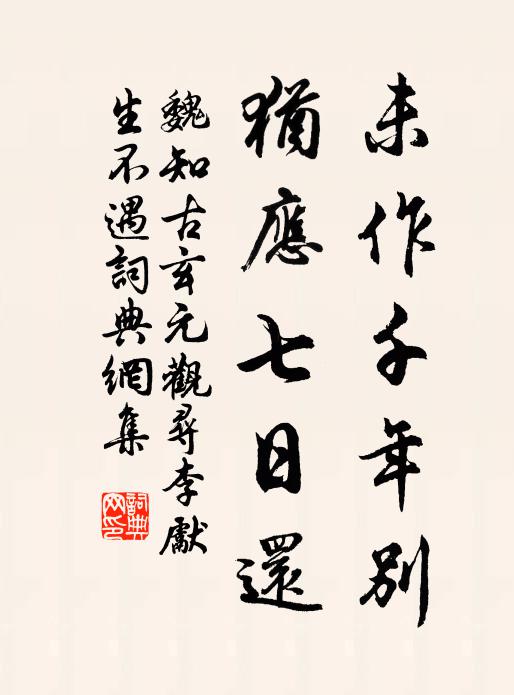 未作千年別
猶應七日還
魏知古玄元觀尋李獻
生不遇詞典網集
詞典
网印